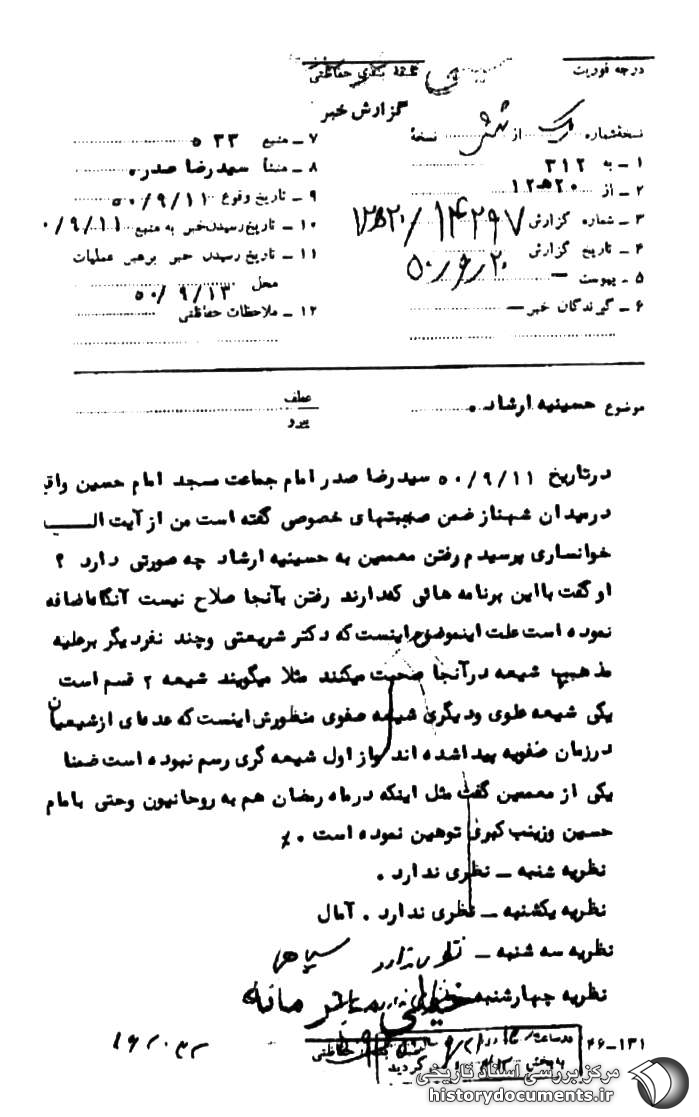 درجه فوریت
طبقه بندی حفاظتی
خیلی محرمانه
گزارش خبر
نسخهٔ شماره یک از شش نسخهٔ
۱ ـ به ۳۱۲
۲ ـ از ۲۰ه۱۲
۳ ـ شماره گزارش ۲۰ه۱۲/۱۴۲۹۷
۴ ـ تاریخ گزارش ۲۰/۹/۵۰
۵ ـ پیوست ـ
۶ ـ گیرندگان خبر ـ
۷ ـ منبع ۵۳۳
۸ ـ منشأ سیدرضا صدر.
۹ ـ تاریخ وقوع ۵۰/۹/۱۱
۱۰ ـ تاریخ رسیدن خبر به منبع ۰/۹/۱۱
۱۱ ـ تاریخ رسیدن خبر برهبر عملیات
محل ۵۰/۹/۱۳
۱۲ ـ ملاحظات حفاظتی
موضوع حسینیه ارشاد.
عطف
پیرو
درتاریخ ۵۰/۹/۱۱ سیدرضا صدر امام جماعت مسجد امام حسین واقع
درمیدان شهناز ضمن صحبتهای خصوصی گفته است من از آیت الـــه
خوانساری پرسیدم رفتن معممین به حسینیه ارشاد چه صورتی دارد ؟
او گفت با این برنامه هائی که دارند رفتن بآنجا صلاح نیست آنگاه اضافه
نموده است علت اینموضوع اینست که دکتر شریعتی وچند نفر دیگر برعلیه
مذهب شیعه درآنجا صحبت میکنند مثلا میگویند شیعه ۲ قسم است
یکی شیعه علوی ودیگری شیعه صفوی منظورش اینست که عده ای ازشیعیان
درزمان صفویه پیدا شده اند واز اول شیعه گری رسم نبوده است ضمنا
یکی از معممین گفت مثل اینکه درماه رمضان هم به روحانیون وحتی بامام
حسین وزینب کبری توهین نموده است .٪
نظریه شنبه ـ نظری ندارد .
نظریه یکشنبه ـ نظری ندارد . آمال
نظریه سه شنبه ـ نظری ندارد سپاهی
نظریه چهارشنبه
خیلی محرمانه
۴۶-۱۳۱
طبقه بندی حفاظتی
گردید
مرکز بررسی اسناد تاریخی
historydocuments.ir